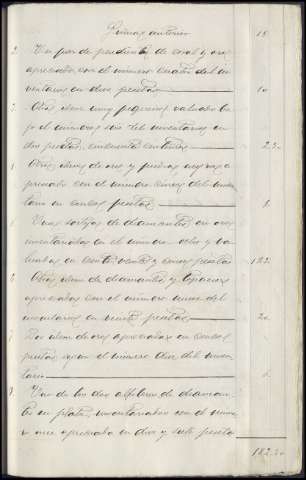 Suma anterior 18
2 Un par de pendientes de coral y oro
apreciados con el número cuatro del in-
ventario en diez pesetas 10
Otros idem muy pequeños valuados ba-
jo el número seis del inventario en
dos pesetas, cincuenta céntimos 2,50
1 Otros idem de oro y piedras negras a-
preciados con el número cinco del inven-
tario en pesetas
1 Una sortija de diamantes en oro
inventariada en el número ocho y va-
luada en ciento veinte y cinco pesetas 125
Otra idem de diamantes y topacios
apreciada con el número nueve del
inventario en veinte pesetas 20
Dos idem de oro apreciadas en
pesetas según el número diez del inven-
tario
Uno de los dos alfileres de diaman-
tes en plata, inventariados con el núme-
ro once apreciado en diez y siete pesetas
182,50